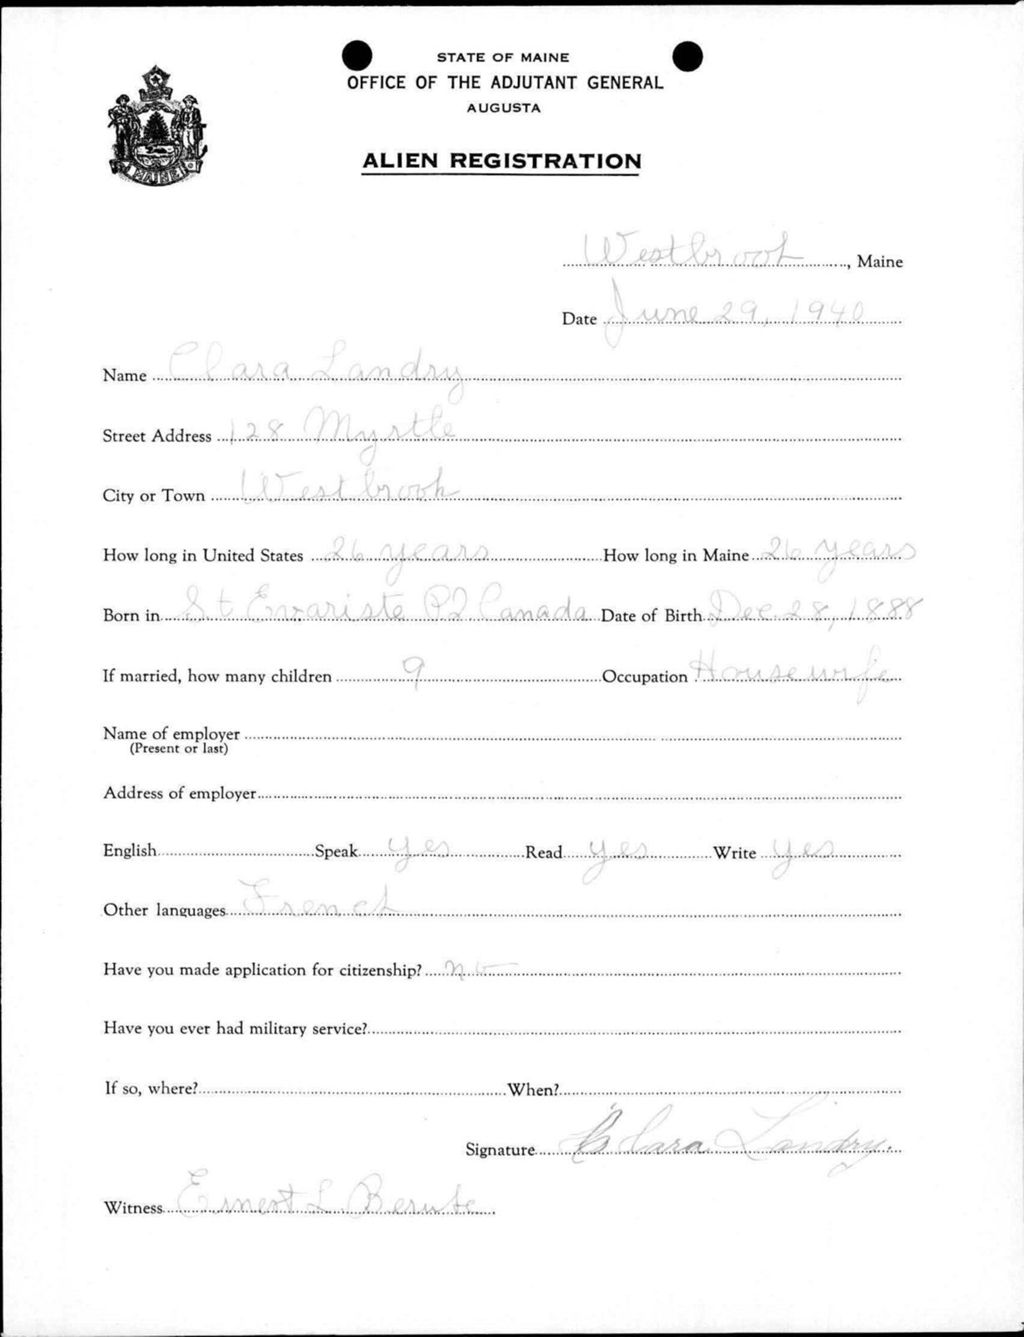 STATE OF MAINE
OFFICE OF THE ADJUTANT GENERAL
AUGUSTA
ALIEN REGISTRATION
Westbrook, Maine
Date June 29, 1940
Name Clara Landry
Street Address 128 Myrtle
City or Town Westbrook
How long in United States 26 years How long in Maine 26 years
Born in St. Evariste PQ Canada Date of Birth Dec. 28, 1888
If married, how many children 9 Occupation Housewife
Name of employer
(Present or last)
Address of employer
English Speak yes Read yes Write yes
Other languages French
Have you made application for citizenship? no
Have you ever had military service?
If so, where? When?
Signature Clara Landry
Witness Ernest L